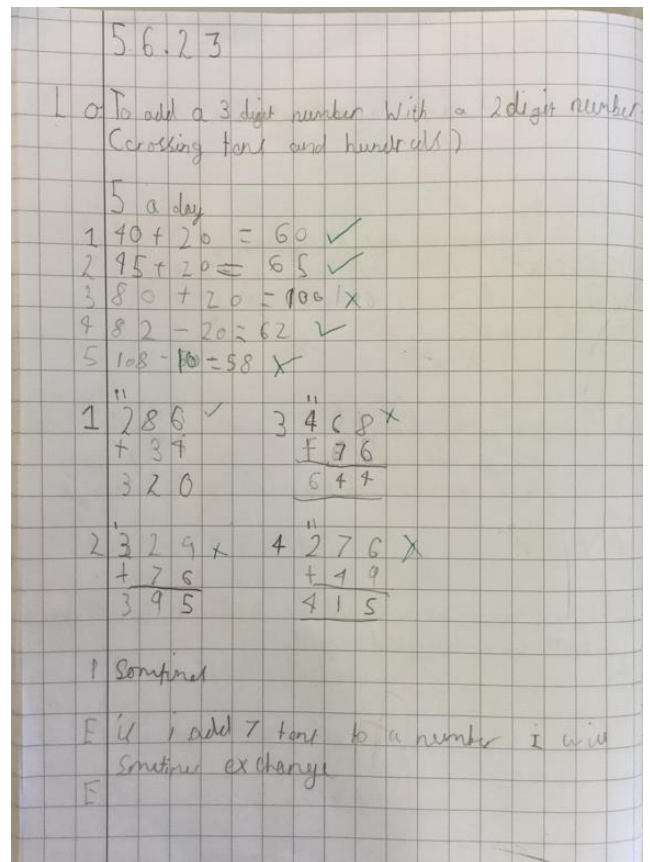 5.6.23
L o To add a 3 digit number with a 2 digit number
(crossing tens and hundreds)
5 a day
1 40 + 20 = 60 ✓
2 45 + 20 = 65 ✓
3 80 + 20 = 100 x
4 82 - 20 = 62 ✓
5 108 - 10 = 58 x
1 286 ✓
+ 34
320
3 468 x
+ 76
644
2 329 x
+ 76
395
4 276 x
+ 49
415
i add 7 tens to a number I will
exchange
E